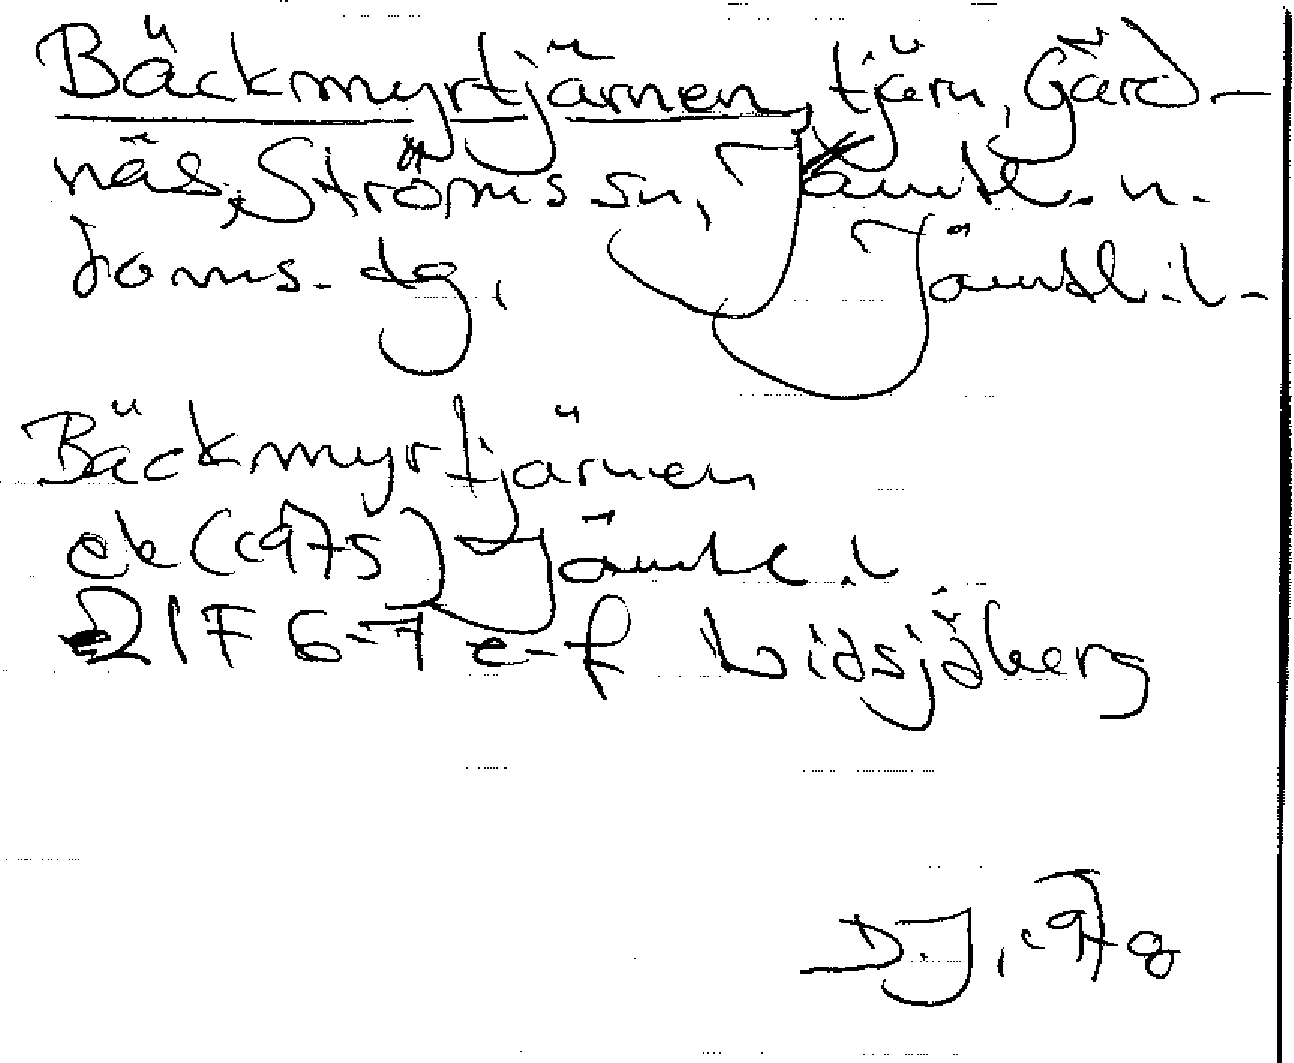 Bäckmyrtjärnen, tjärn, Gärd-
näs, Ströms sn, Jämtl. n.
doms. dg, Jämtl. l.
Bäckmyrtjärnen
ek (1975) Jämtl. l.
21F 6-7 e-f Lidsjöberg
D.J, 1978